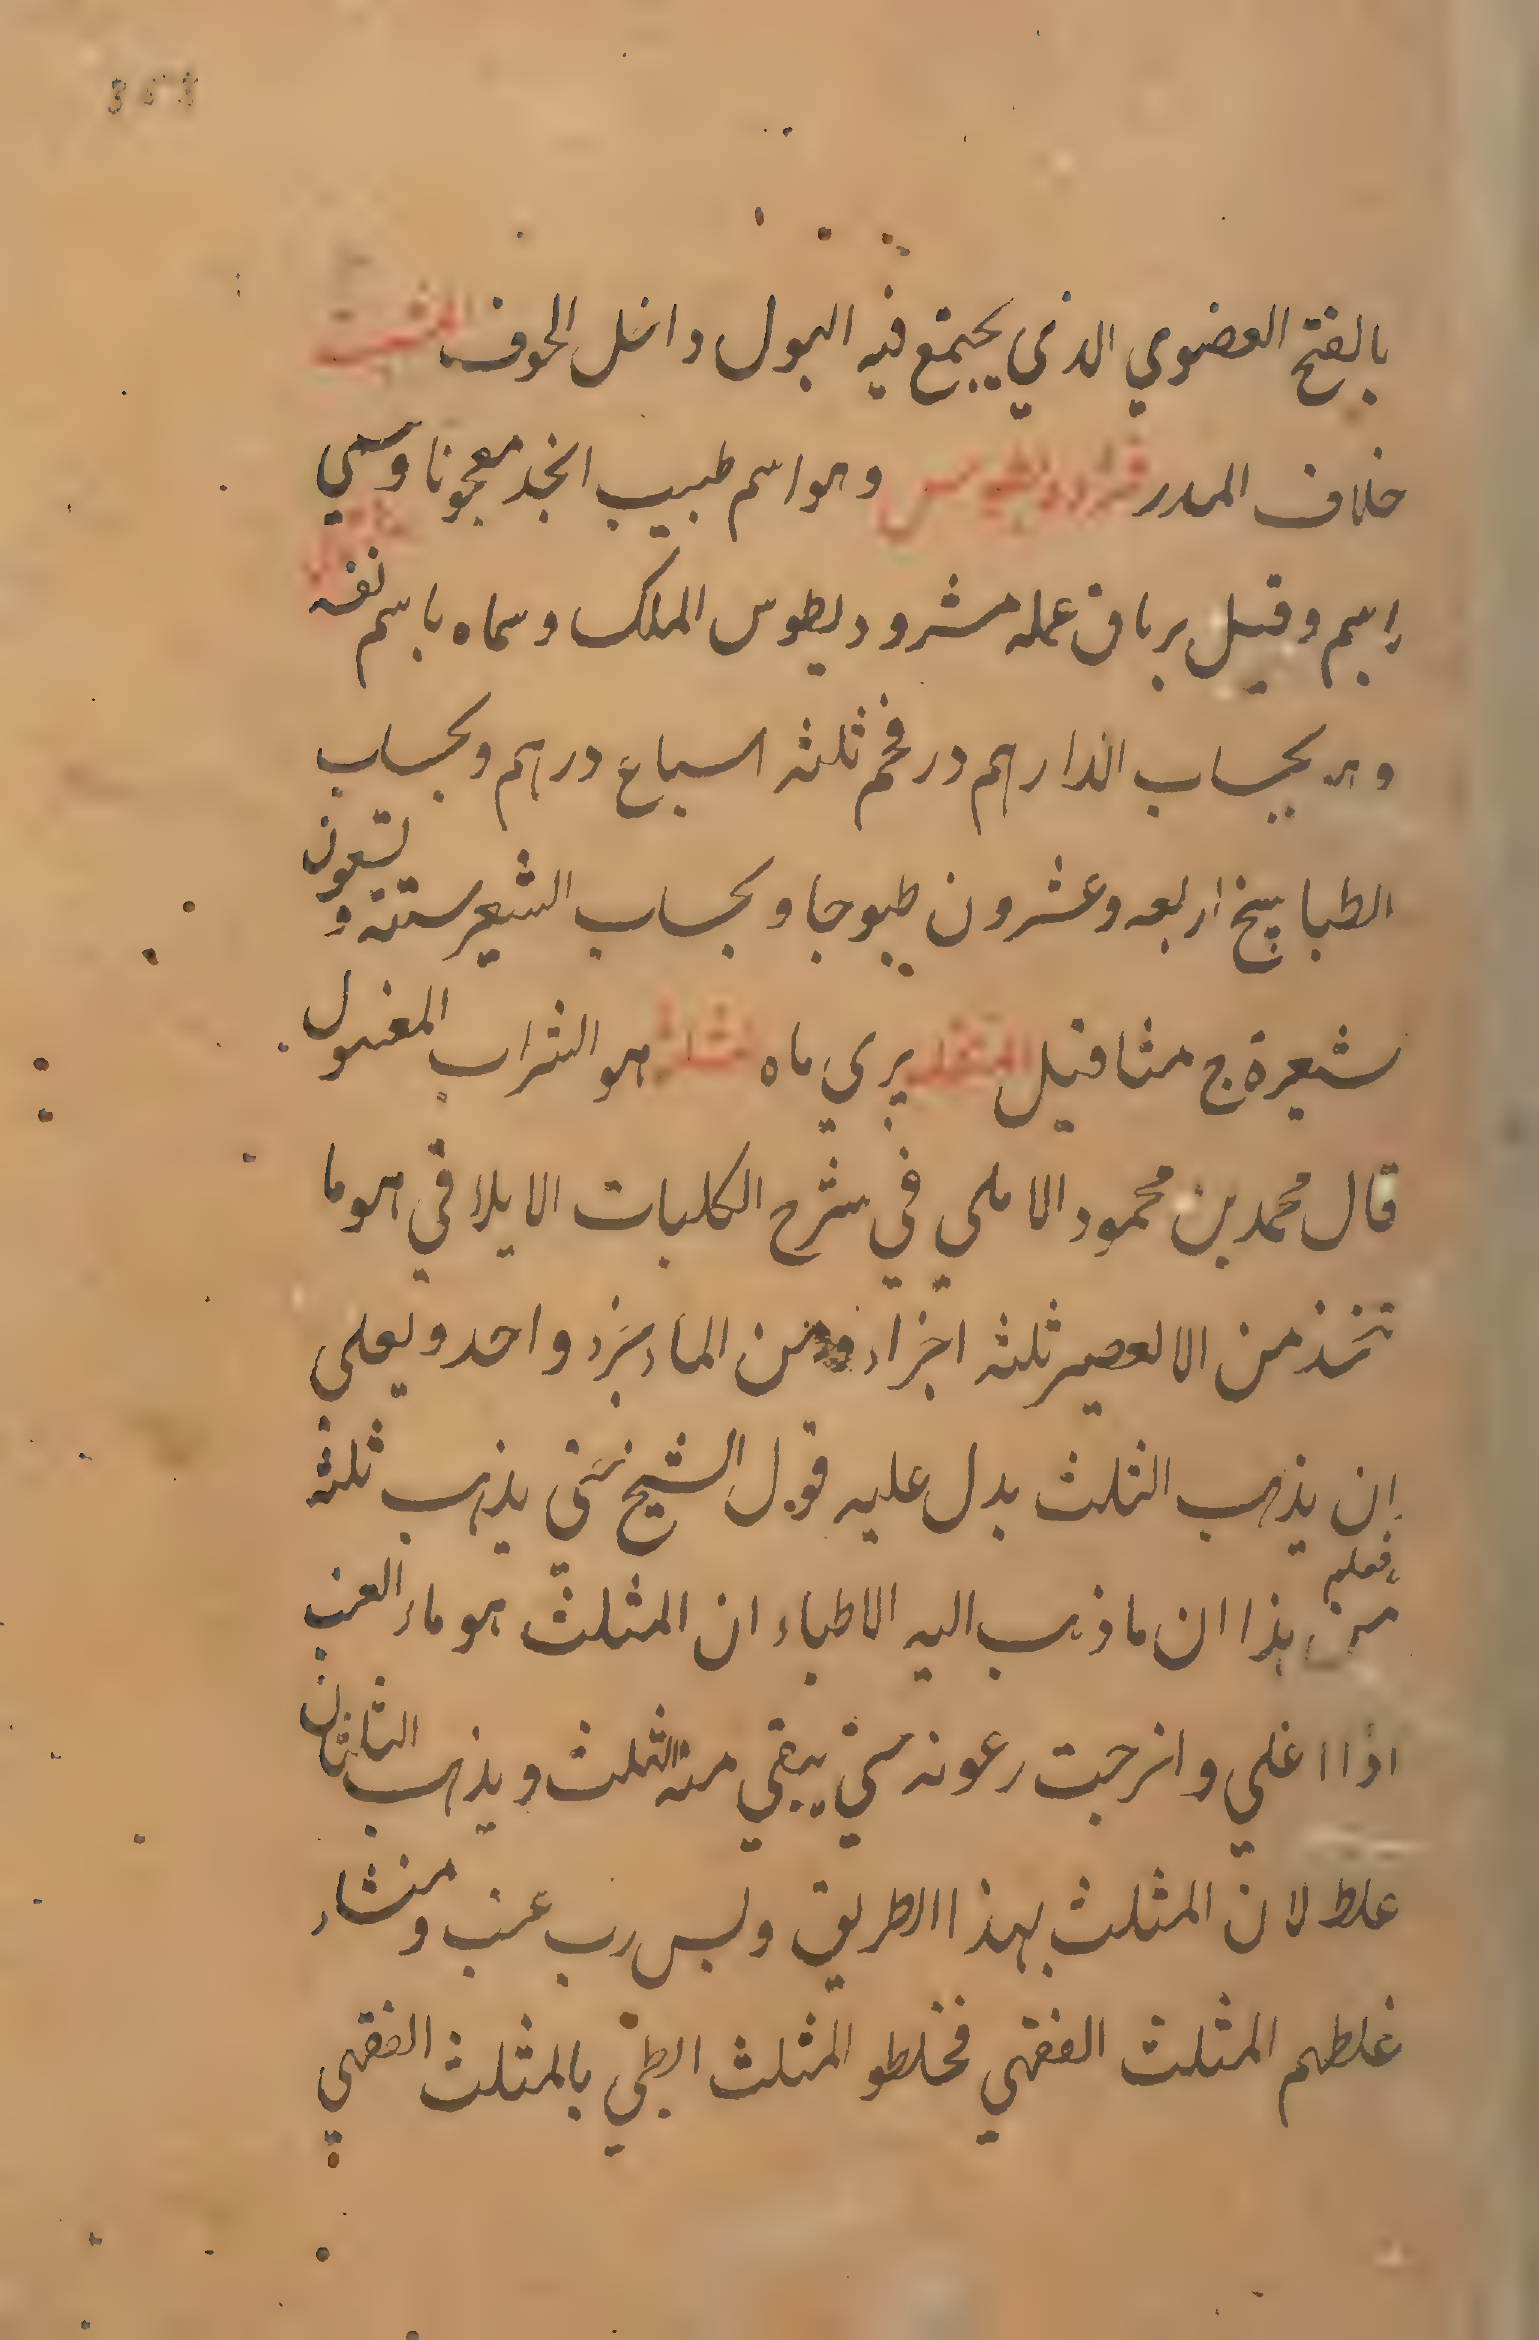 بالفتح العضوي الذي يجتمع فيه البول داخل الجوف
خلاف المدر وهو اسم طبيب اتخذ معجونا وسمي
باسم وقيل برياق عمله مشرو ديطوس الملك وسماه باسم نفسه
وهو بحساب الدارهم درخم ثلثة اسباع درهم وبحساب
الطبابيخ اربعه وعشرون طبوجا وبحساب الشعير ستة وتسعون
شعيرة ج مثاقيل المثقلة يري ماه مثلث هو الشراب المغسول
قال محمد بن محمود الاملي في شرح الكليات الايلاقي هو ما
تتخذ من الالعصير ثلثة اجزاء ومن الماء جزء واحد ويغلى
ان يذهب الثلث يدل عليه قول الشيخ حتى يذهب ثلثه
فعلم
من هذا ان ما ذهب اليه الاطباء ان المثلث هو ماء العنب
اذا اغلي واخرجت رعونه حتى يبقي منه الثلث ويذهب الثلثان
غلط لان المثلث بهذا الطريق وليس رب عنب ومنشاء
غلطهم المثلث الفقهي فخلطو المثلث الطبي بالمثلث الفقهي